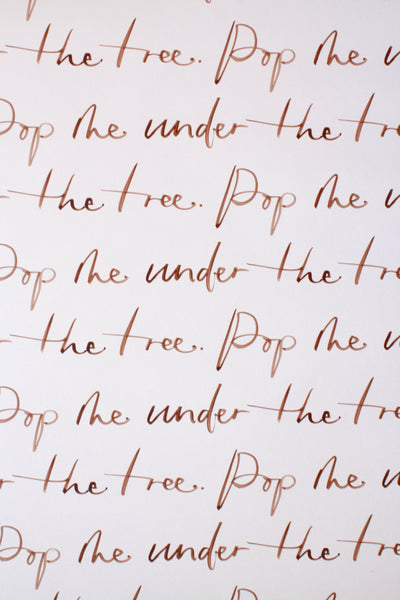 r the tree. Pop me u
Pop me under the tre
r the tree. Pop me u
Pop me under the tre
r the tree. Pop me u
Pop me under the tre
r the tree. Pop me u
Pop me under the tre